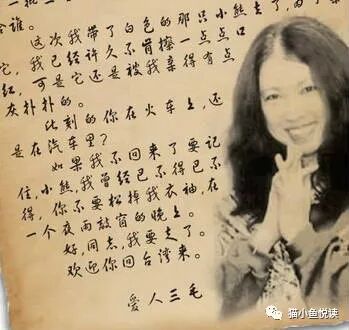 谁。
这次我带了白色的那只小熊去了,为了亲
它,我已经许久不肯擦一点点口
红,可是它还是被我亲得有点
灰扑扑的。
此刻的你在火车上,还
是在汽车里?
如果我不回来了要记
住,小熊,我曾经巴不得巴不
得,你不要松掉我衣袖,在
一个夜雨敲窗的晚上。
好,同志,我要走了。
欢迎你回台湾来。
爱人三毛
猫小鱼悦读